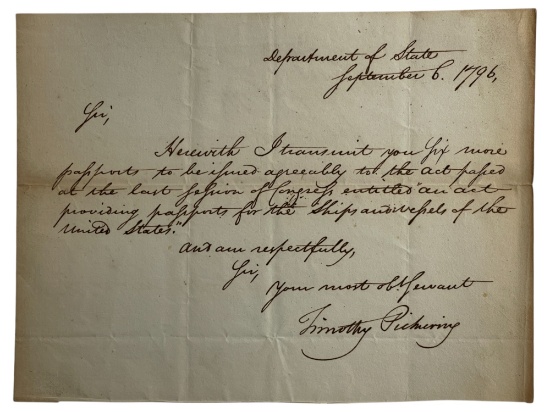 Department of State
September 6. 1796,
Sir,
Herewith I transmit you six more
passports to be issued agreeably to the act passed
at the last session of Congress entitled "an act
providing passports for the Ships and vessels of the
United States."
and am respectfully,
Sir,
Your most obt. Servant
Timothy Pickering